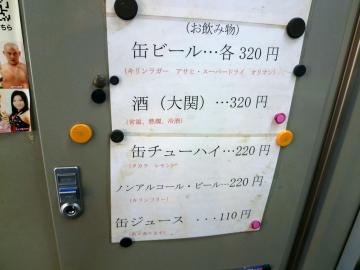 (お飲み物)
缶ビール…各320円
(キリンラガー アサヒ・スーパードライ オリオン)
酒（大関）…320円
(常温、熱燗、冷酒)
缶チューハイ…220円
(タカラ レモン)
ノンアルコール・ビール…220円
(キリンフリー)
缶ジュース ・・・110円